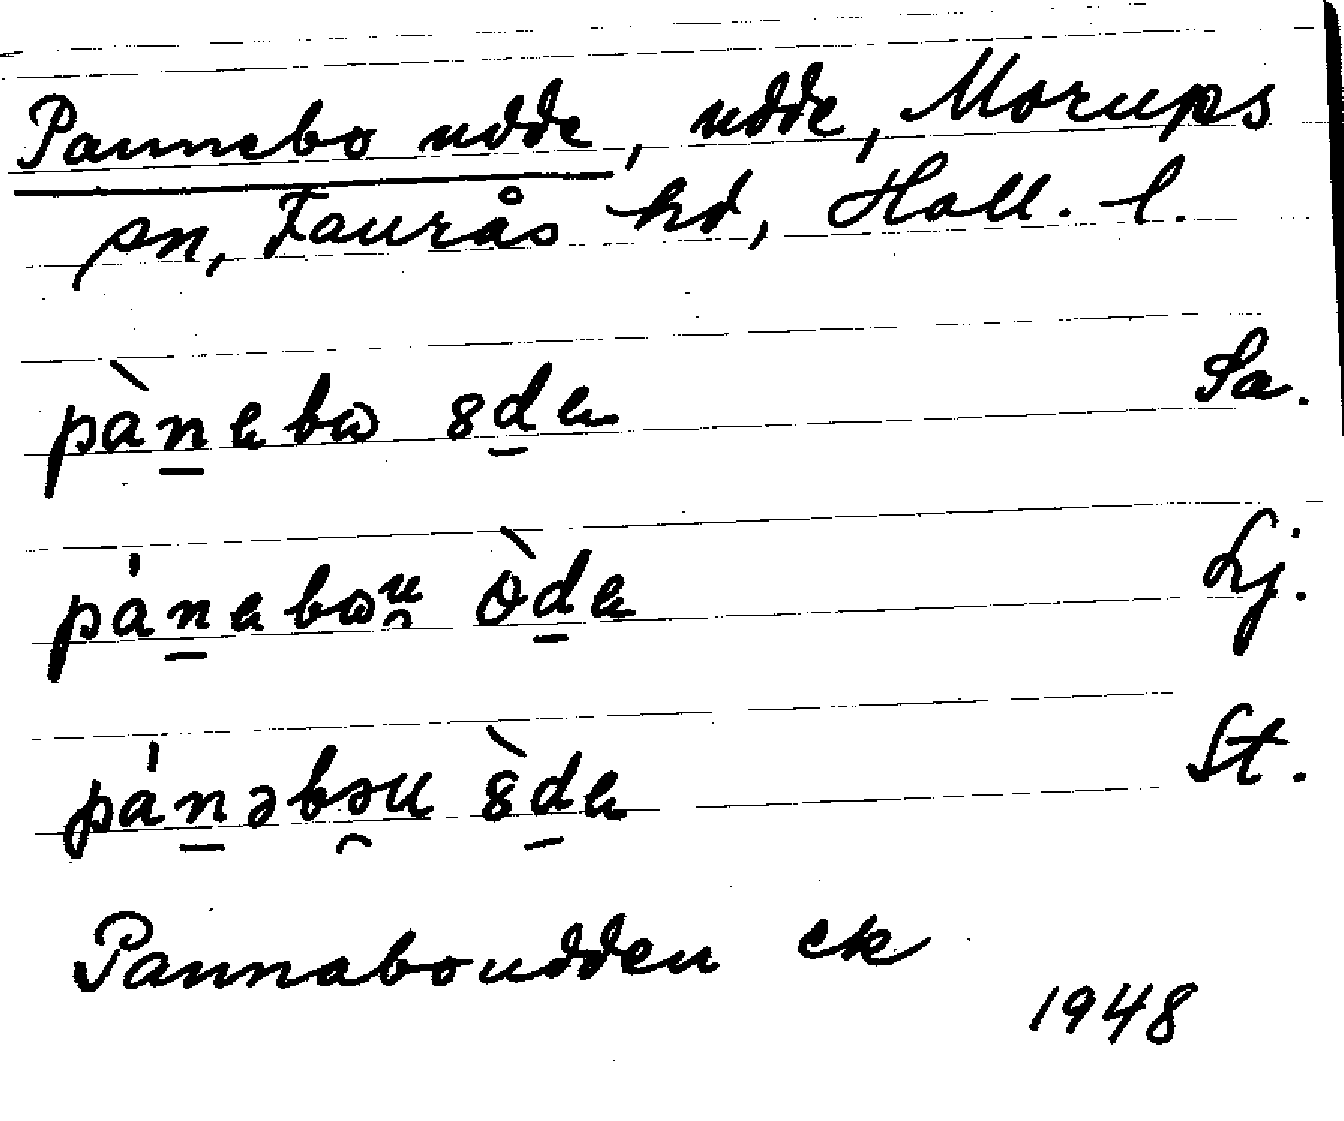 Pannebo udde, udde, Morups
sn, Faurås hd, Hall. l.
pànebω 8de Sa.
pánebωu òde Lj.
pánəbəu 8̀de St.
Pannaboudden ek
1948